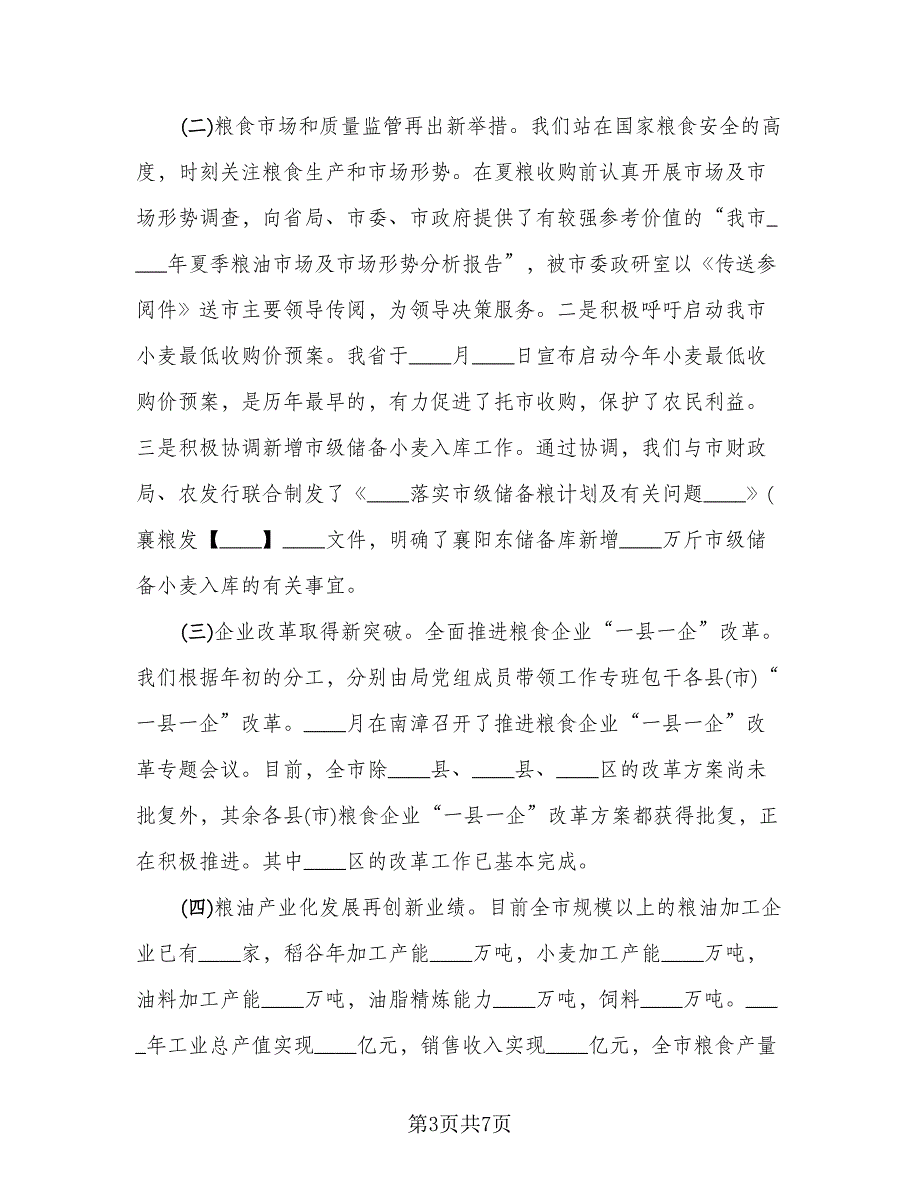 (二)粮食市场和质量监管再出新举措。我们站在国家粮食安全的高
度，时刻关注粮食生产和市场形势。在夏粮收购前认真开展市场及市
场形势调查，向省局、市委、市政府提供了有较强参考价值的“我市_
___年夏季粮油市场及市场形势分析报告”，被市委政研室以《传送参
阅件》送市主要领导传阅，为领导决策服务。二是积极呼吁启动我市
小麦最低收购价预案。我省于____月____日宣布启动今年小麦最低收
购价预案，是历年最早的，有力促进了托市收购，保护了农民利益。
三是积极协调新增市级储备小麦入库工作。通过协调，我们与市财政
局、农发行联合制发了《____落实市级储备粮计划及有关问题____》(
襄粮发【____】____文件，明确了襄阳东储备库新增____万斤市级储
备小麦入库的有关事宜。
(三)企业改革取得新突破。全面推进粮食企业“一县一企”改革。
我们根据年初的分工，分别由局党组成员带领工作专班包干各县(市)“
一县一企”改革。____月在南漳召开了推进粮食企业“一县一企”改
革专题会议。目前，全市除____县、____县、____区的改革方案尚未
批复外，其余各县(市)粮食企业“一县一企”改革方案都获得批复，正
在积极推进。其中____区的改革工作已基本完成。
(四)粮油产业化发展再创新业绩。目前全市规模以上的粮油加工企
业已有____家，稻谷年加工产能____万吨，小麦加工产能____万吨，
油料加工产能____万吨，油脂精炼能力____万吨，饲料____万吨。___
_年工业总产值实现____亿元，销售收入实现____亿元，全市粮食产量
第3页共7页